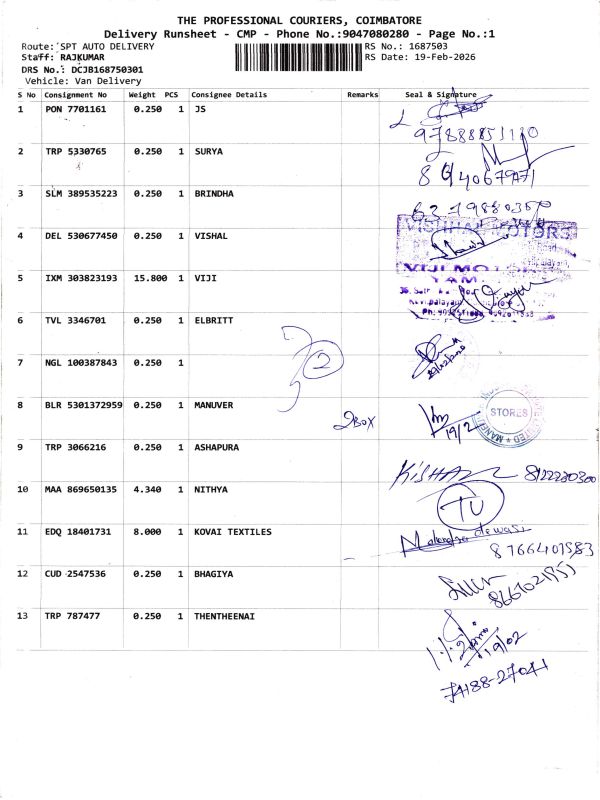 THE PROFESSIONAL COURIERS, COIMBATORE
Delivery Runsheet - CMP - Phone No.:9047080280 - Page No.:1
Route: SPT AUTO DELIVERY
RS No.: 1687503
Staff: RAJKUMAR
RS Date: 19-Feb-2026
DRS No.: DCJB168750301
Vehicle: Van Delivery
S No Consignment No Weight PCS Consignee Details Remarks Seal & Signature
1 PON 7701161 0.250 1 JS
2 TRP 5330765 0.250 1 SURYA
3 SLM 389535223 0.250 1 BRINDHA
4 DEL 530677450 0.250 1 VISHAL
MOTORS
5 IXM 303823193 15.800 1 VIJI
VIJI
6 TVL 3346701 0.250 1 ELBRITT
2
7 NGL 100387843 0.250 1
8 BLR 5301372959 0.250 1 MANUVER
2BOX
19/2
STORES
9 TRP 3066216 0.250 1 ASHAPURA
10 MAA 869650135 4.340 1 NITHYA
TU
11 EDQ 18401731 8.000 1 KOVAI TEXTILES
8766401583
12 CUD 2547536 0.250 1 BHAGIYA
13 TRP 787477 0.250 1 THENTHEENAI
19/02
74188-27041